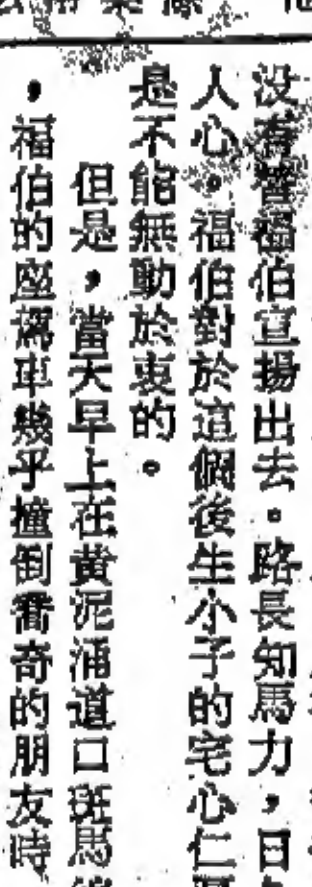 没有替福伯宣揚出去。路長知馬力，日
人心。福伯對於這個後生小子的宅心仁厚
是不能無動於衷的。
但是，當天早上在黃泥涌道口斑馬
，福伯的座駕車幾乎撞倒喬奇的朋友時